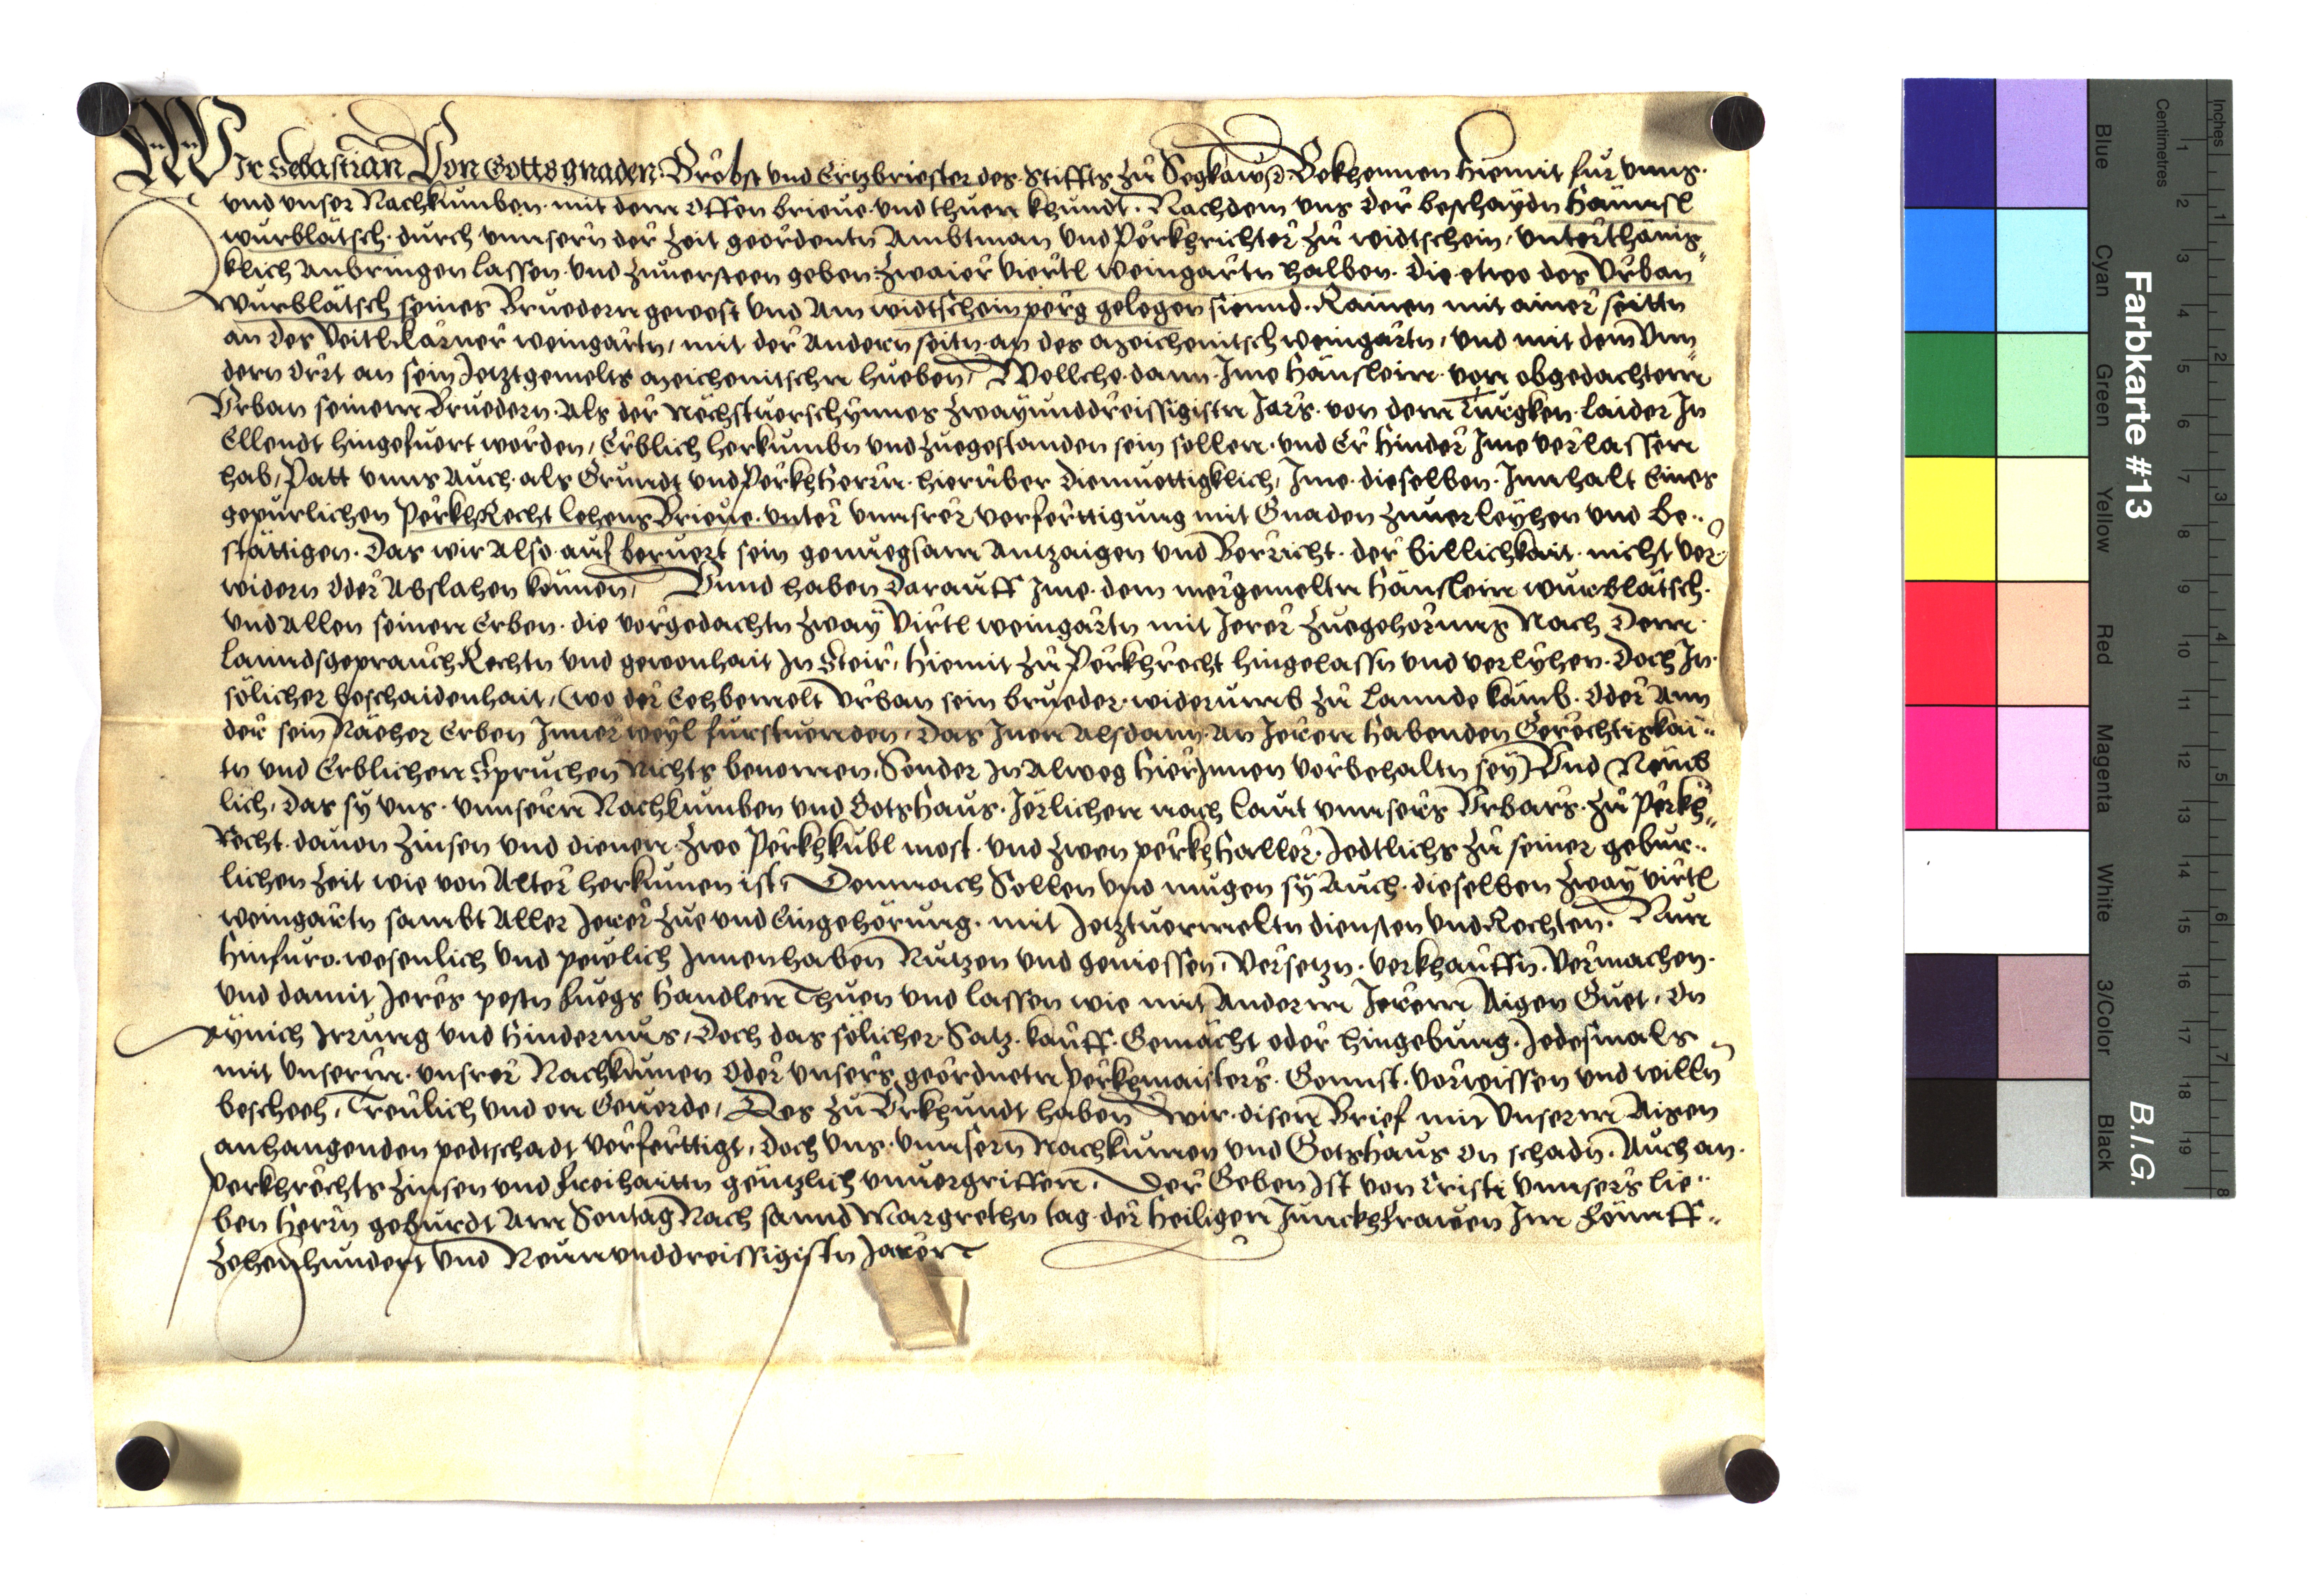 Wir Sebastian Von Gotts gnaden. Brobst vnd Ertzbriester des Stiffts zů Segkaw ꝛc. Bekhennen hiemit fur vnns.
vnd vnser Nachkumben. mit dem offen brieue. vnd thuen khundt. Nachdem vns der beschaydn Hännsl
wurblätsch. durch vnnsern der zeit geordentn Ambtman vnd Perkhrichter zů widtschein, vnterthänig„
klich Anbringen lassen. vnd zuuersteen geben. zwaier viertl weingartn halben. die etwo des Vrban
wurblätsch seines Bruedern gewest vnd Am widtscheinperg gelegen siennd. Rainen mit ainer seittn
an des Veitl Karner weingartn, mit der Andern seitn. an des azeichenitsch weingartn, vnd mit dem Vnn„
dern Ort an sein Jetztgemelts azeichenitschen hueben, Wellche. dann. Jme Hänslein. von obgedachtem
Vrban seinem Bruedern. Als der Nechstuerschynnes zwayunddreissigistn Jars. von denn Turgken. laider Jn
Ellendt hingefuert worden, Erblich herkumbn vnd zuegestanden sein sollen. vnd Er hinder Jme verlassen
hab, Patt vnns Auch. als Grundt vnd Perkhherrn. hieruber diemuettigklich, Jme. dieselben. Jnnhalt Eines
gepurlichen PerkhRecht lehens Brieue. vnter vnnsrer verferttigung mit Gnaden zuuerleyhen vnd be„
stättigen. Das wir Also. auf beruert sein genuegsam Antzaigen vnd Berricht. der billichkait. nicht ver„
widern oder Abslahen können, Vnnd haben darauff Jme. dem mergemeltn Hänslein wurblätsch.
vnd Allen seinen Erben. die vorgedachtn zway Virtl weingartn mit Jerer Zuegehorung Nach Denn.
lanndsgeprauch Rechtn vnd gewonhait Jn Steir, hiemit zů Perkhrecht hingelassn vnd verlyhen. Doch Jn.
sölicher beschaidenhait, (wo der Eehbemelt Vrban sein brueder. widerumb zů lannde kämb. oder Ann
der sein Näeher Erben Jnner weyl furstuenden, Das Jnen Alsdann. An Jeren habenden Gerechtigkai„
tn vnd Erblichen Spruchen Nichts benomen, Sonder Jn Alweg hierJnnen vorbehaltn sey) Vnd Nemb
lich, das sy vns. vnnsern Nachkumben vnd Gotshaus. Jerlichen nach laut vnnsers Vrbars. zů Perkh„
Recht. dauon zinsen vnd dienen. zwo Perkhkubl most. vnd zwen perkhhaller. Jedtlichs zů seiner gebur„
lichen zeit wie von Alter herkumen ist, Demnach Sollen vnd mugen sy Auch. dieselben zway virtl
weingartn sambt Aller Jerer zue vnd Eingehörung. mit Jetztuermeltn diensten vnd Rechten. Nun
hinfuro. wesenlich vnd pewlich Jnnenhaben Nutzen vnd geniessen, Versetzn. verkhauffn. Vermachen.
vnd damit Jeres pestn fuegs handlen Thuen vnd lassen wie mit Anderm Jerem Aigen Guet, On
aynich Jrrung vnd hindernus, Doch das sölicher Satz. kauff. Gemächt oder hingebung. Jedesmals
mit vnserm. vnsrer Nachkumen Oder vnsers geordnetn Perkhmaisters. Gonnst. vorwissen vnd willn
bescheeh, Treulich vnd on Geuerde, Des zů Vrkhundt haben wir. disen Brief mit vnserm Aigen
anhangenden pedtschadt verferttigt, doch vns. vnnsern Nachkumen vnd Gotshaus on schadn. Auch an.
Perkhrechts zinsen vnd freihaittn gentzlich vnuergriffen. Der Geben Jst von Cristi vnnsers lie„
ben herrn geburdt Am Sontag Nach sannd Margrethn tag. der heiligen Junckhfrawen Jm Fönnff„
zehenhundert vnd Neunvnddreissigistn Jarer
Farbkarte #13
B.I.G.
Inches
Centimetres
Blue
Cyan
Green
Yellow
Red
Magenta
White
3/Color
Black
1 2 3 4 5 6 7 8 9 10 11 12 13 14 15 16 17 18 19
1 2 3 4 5 6 7 8